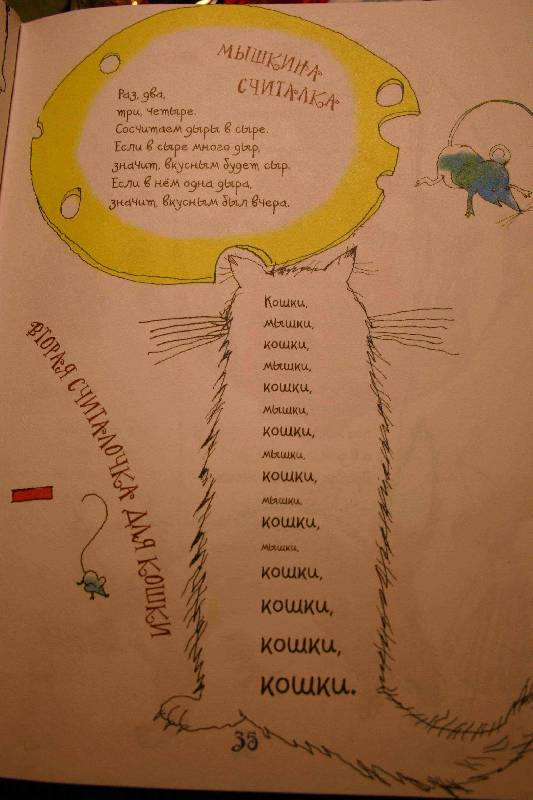 МЫШКИНА
СЧИТАЛКА
Раз, два,
три, четыре.
Сосчитаем дыры в сыре.
Если в сыре много дыр,
значит, вкусным будет сыр.
Если в нём одна дыра,
значит, вкусным был вчера.
ВТОРАЯ СЧИТАЛОЧКА ДЛЯ КОШКИ
Кошки,
мышки,
кошки,
мышки,
кошки,
мышки,
кошки,
мышки,
кошки,
мышки,
кошки,
мышки,
кошки,
кошки,
кошки,
кошки.
35